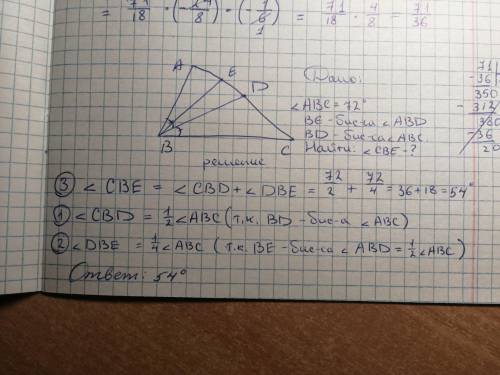 = 71/18 · (-24/8) · (-1/6) = 71/18 · 4/8 = 71/36
A
E
D
B
C
Дано:
∠ABC = 72°
BE - бис-са ∠ABD
BD - бис-са ∠ABC.
Найти: ∠CBE - ?
71
-36
350
- 312
380
-36
20
решение
③ ∠CBE = ∠CBD + ∠DBE = 72/2 + 72/4 = 36 + 18 = 54°
① ∠CBD = 1/2 ∠ABC (т.к. BD - бис-а ∠ABC)
② ∠DBE = 1/4 ∠ABC (т.к. BE - бис-са ∠ABD = 1/2 ∠ABC)
Ответ: 54°